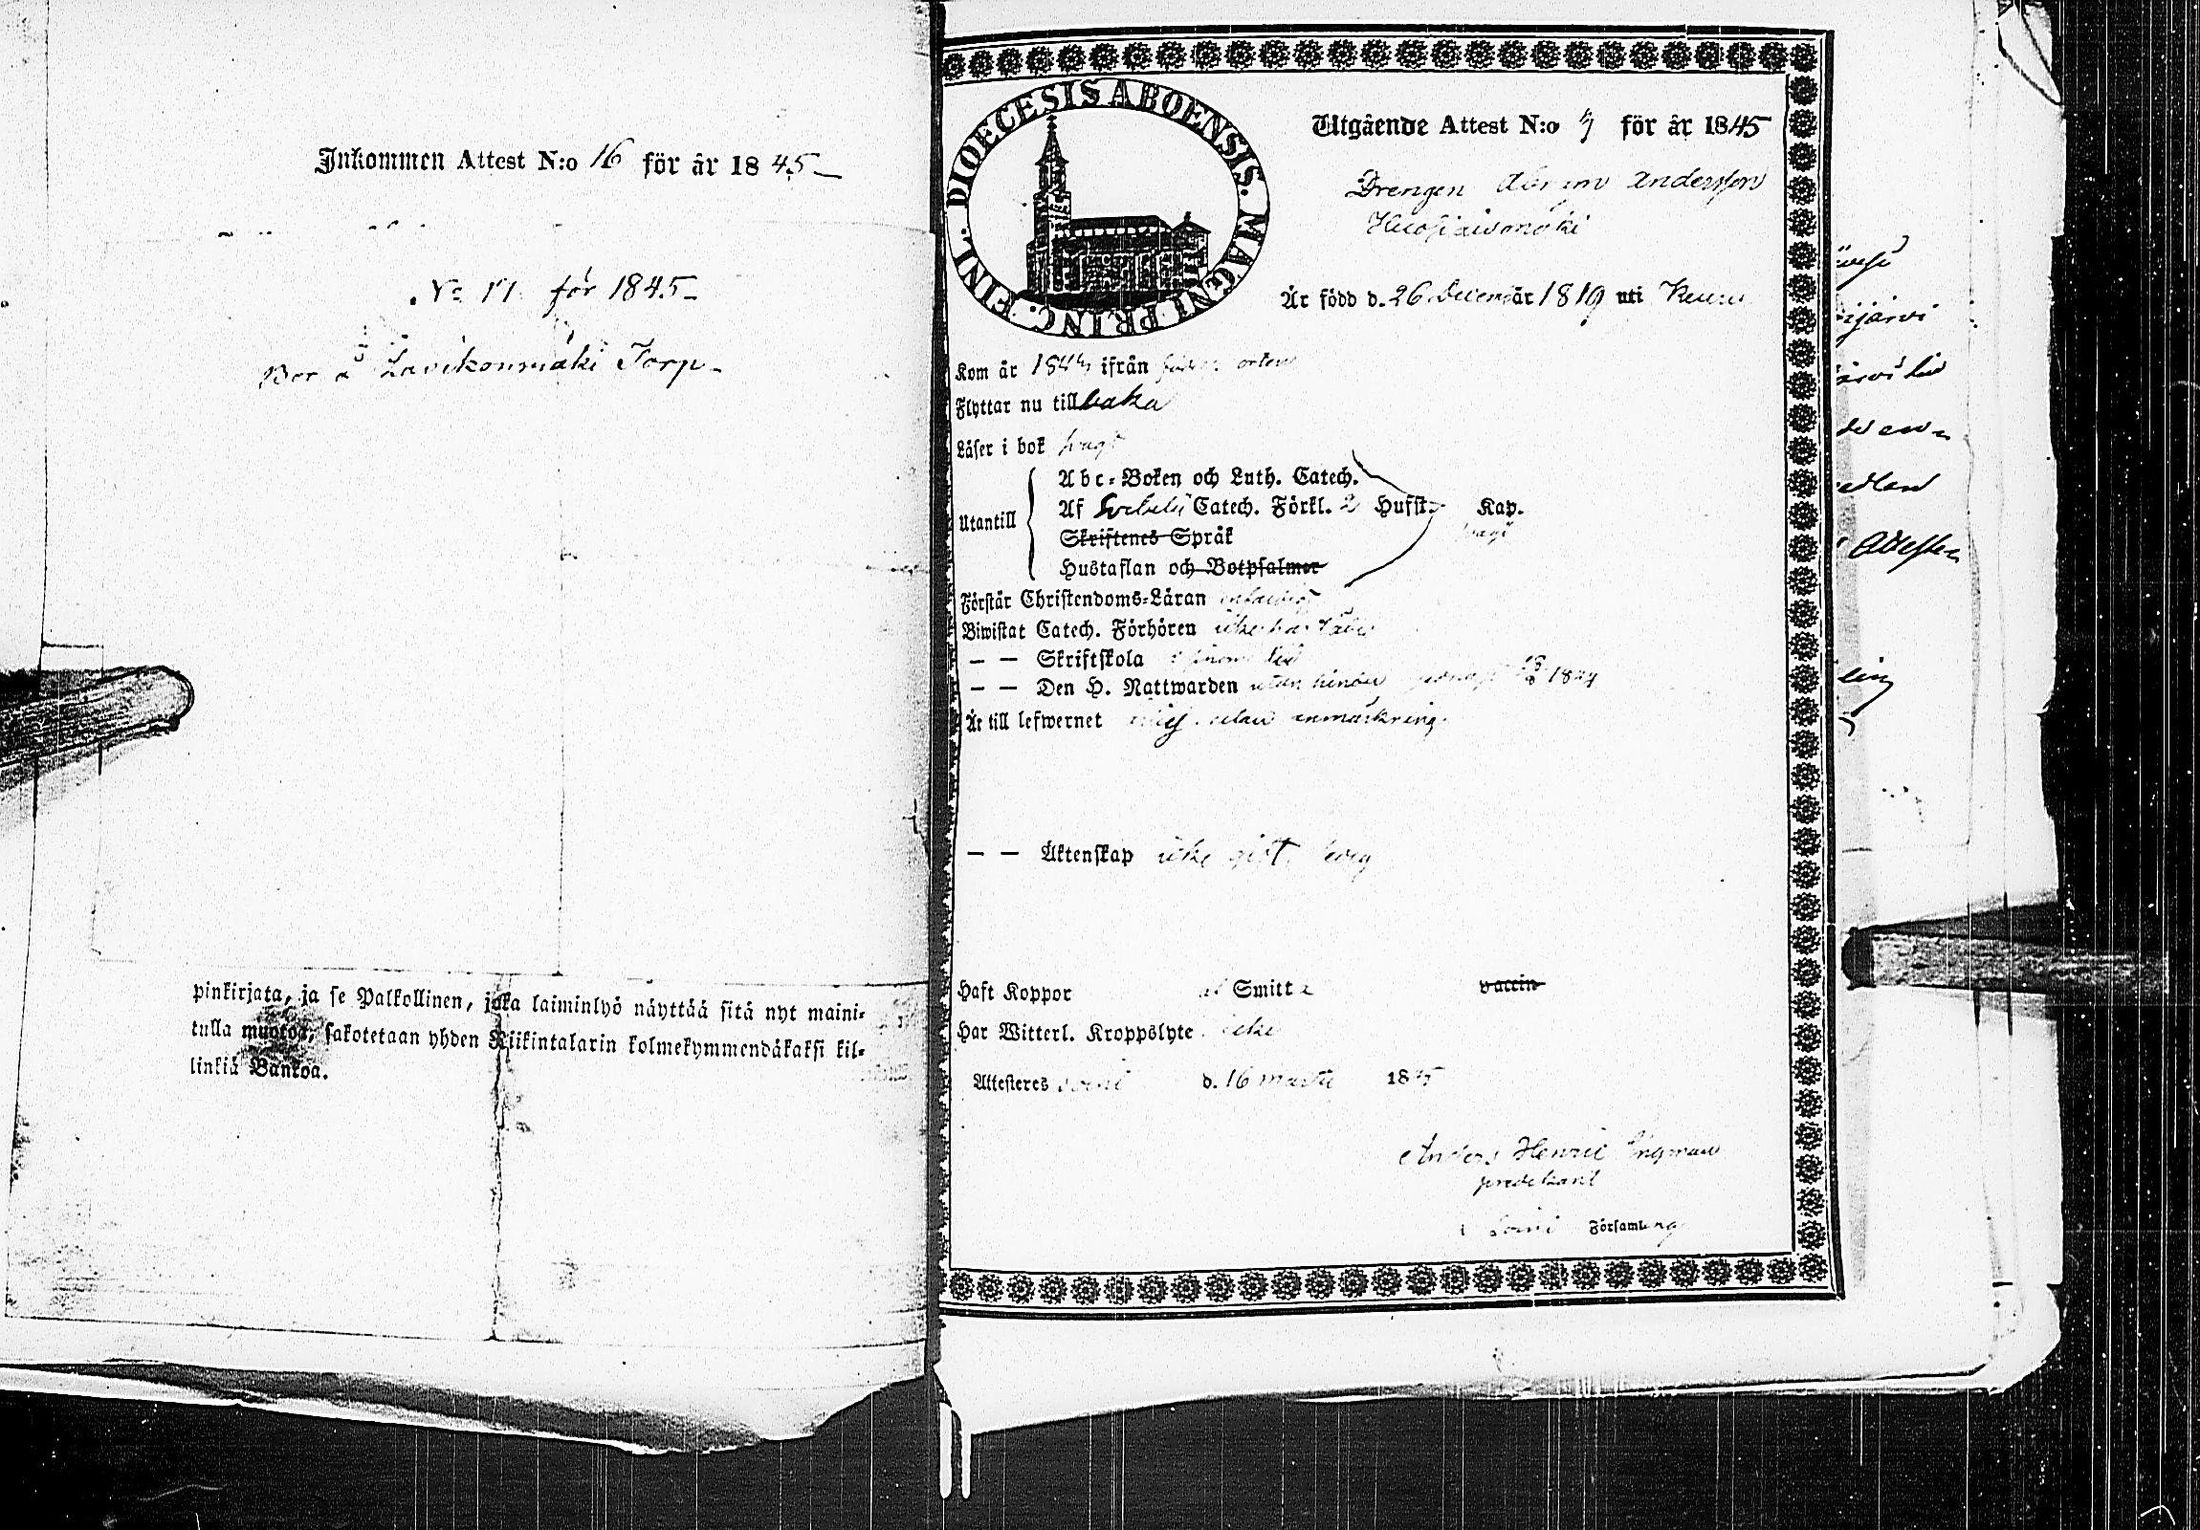 Inkommen Attest N:o 16 för år 1845
No 11 för 1845
Bor å Lavikonmäki Torp
pinkirjata, ja se Palkollinen, joka laiminlyö näyttää sitä nyt maini-
tulla muotoa, sakotetaan yhden Riikintalarin kolmekymmendäkaksi kil-
linkiä Bankoa.
DIOECESIS ABOENSIS. MAGNI PRINC. FINL.
Utgående Attest N:o 7 för år 1845
Drengen Abram Andersson
Är född d. 26 Decemb år 1819 uti Keuru
Kom år 1844 ifrån orten
Flyttar nu tillbaka
Läser i bok svagt
Utantill
Abc-Boken och Luth. Catech.
Af Svebelii Catech. Förkl. 2 Hufst. Kap.
svagt
Skriftenes Språk
Hustaflan och Botpsalmer
Förstår Christendoms-Läran enfaldigt
Biwistat Catech. Förhören
— — Skriftskola
— — Den H. Nattwarden utan hinder 1844
Är till lefwernet utan anmärkning
— — Äktenskap icke gift, ledig
Haft Koppor af Smitta vaccin
Har Witterl. Kroppslyte icke
Attesteres Soini d. 16 Martii 1845
Anders Henric Ingman
predikant
i Soini Församling
üvesi
ijärvi
Attesten
ling